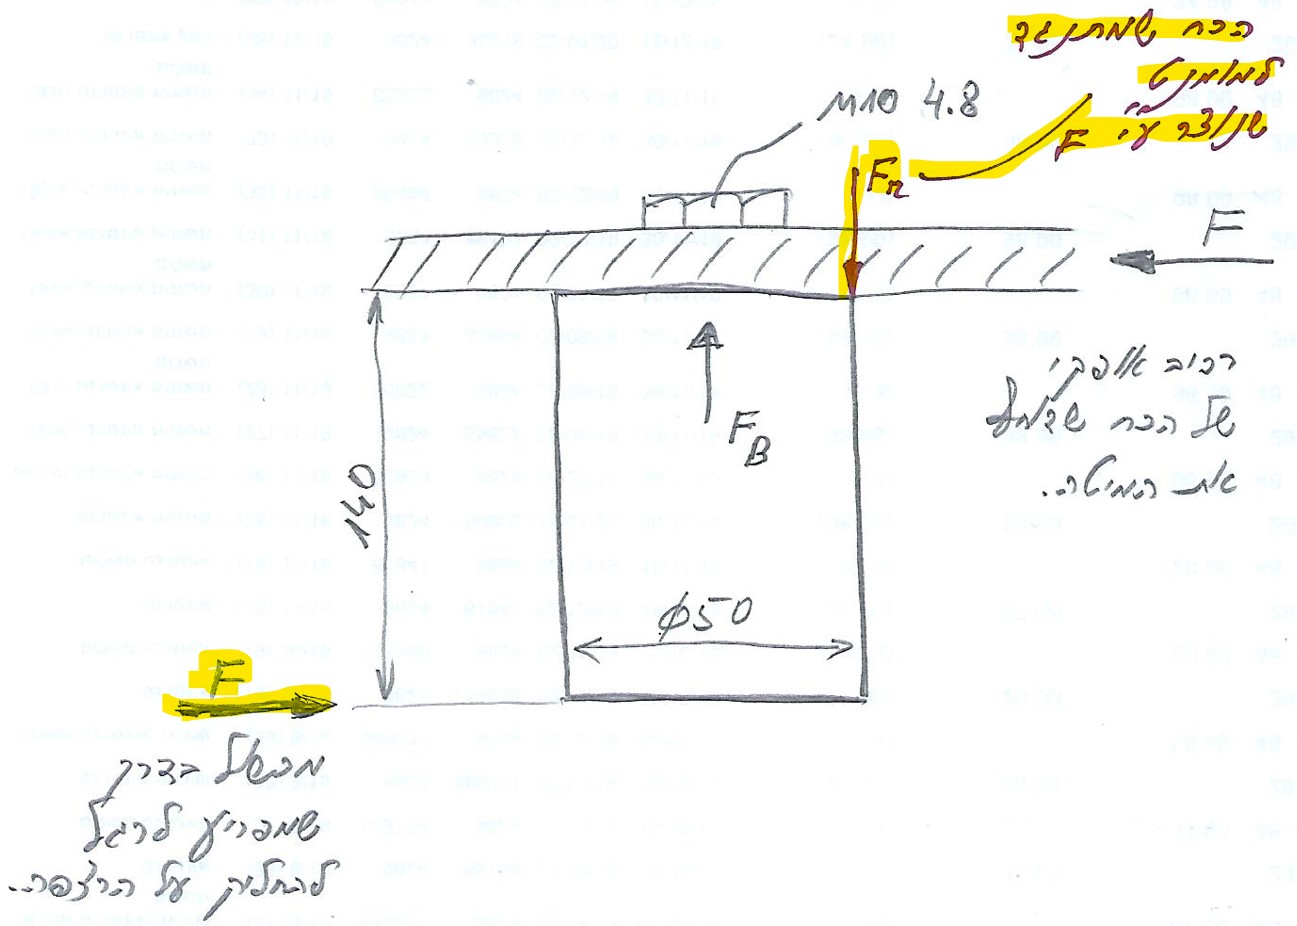 הכח שמתנגד
למומנט
שנוצר ע״י F
M10 4.8
Fn
F
רכיב אופקי
של הכח שדוחף
את המיטה.
FB
140
ϕ50
F
מכשול בדרך
שמפריע לרגל
להחליק על הרצפה.